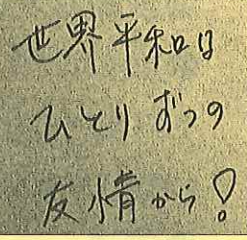 世界平和は
ひとりずつの
友情から!